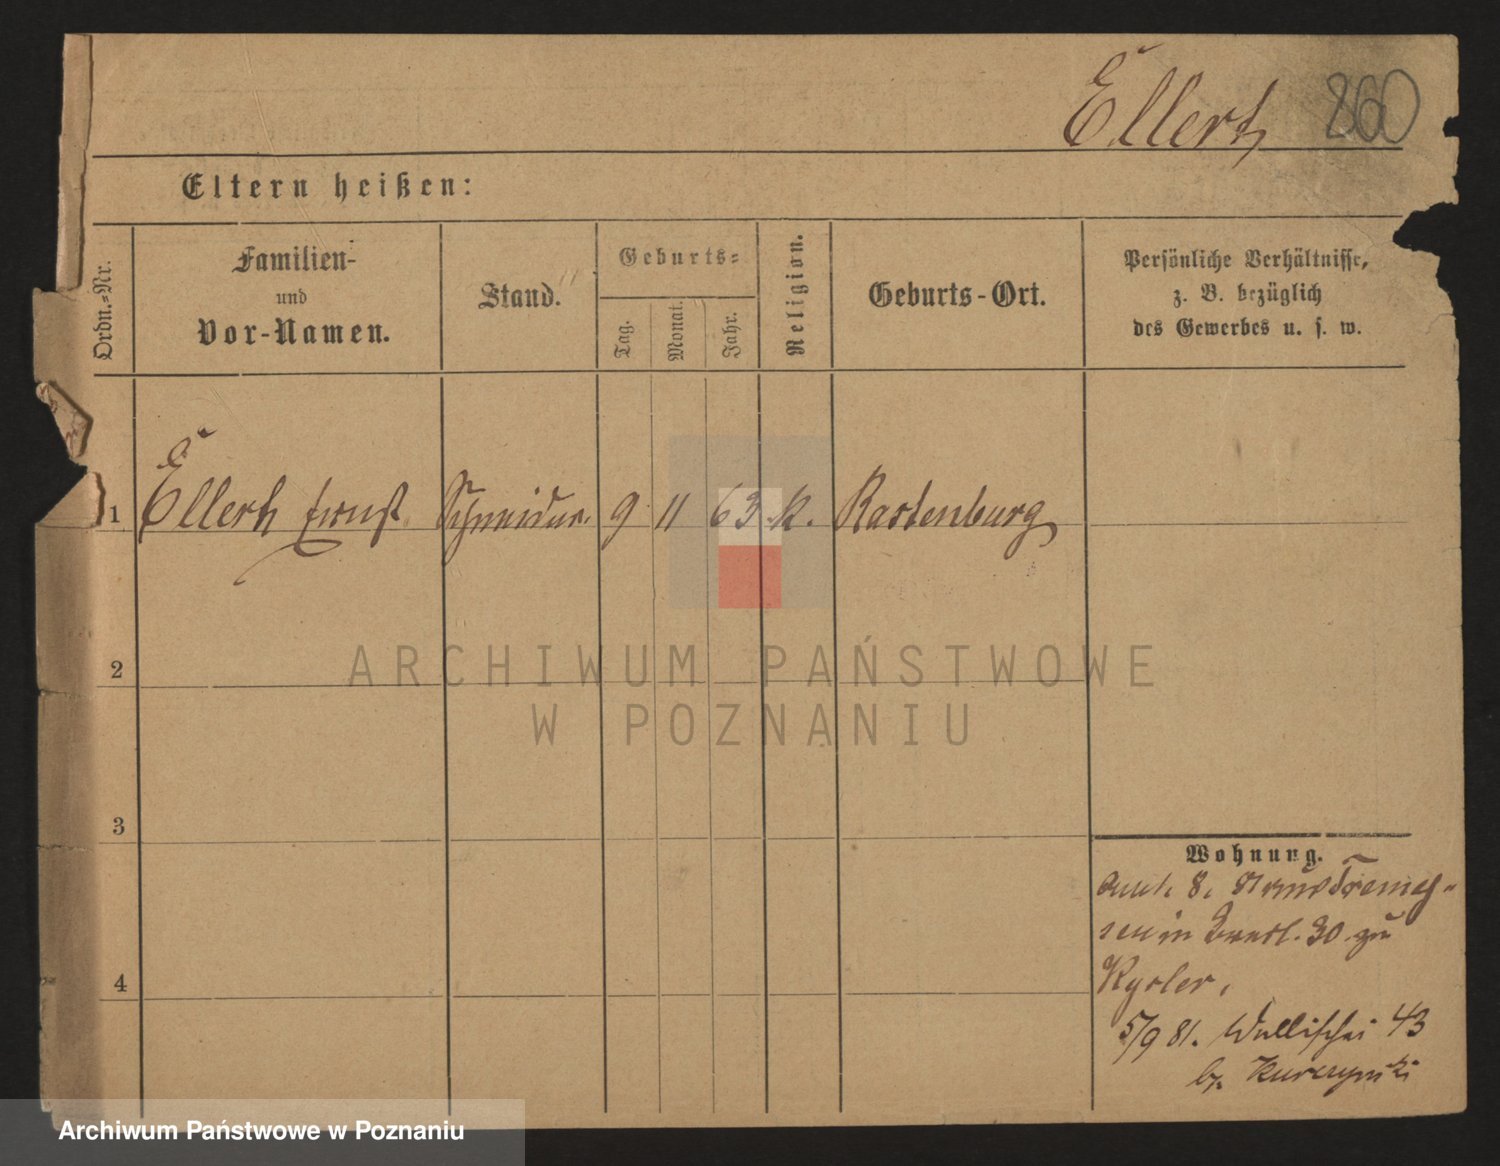 Ellert 260
Eltern heißen:
Ordn.=Nr.
Familien-
und
Vor-Namen.
Stand.
Geburts=
Tag.
Monat.
Jahr.
Religion.
Geburts-Ort.
Persönliche Verhältnisse,
z. B. bezüglich
des Gewerbes u. s. w.
1 Ellert Ernst Schneider. 9 11 63 k. Rastenburg
2
3
4
Wohnung.
8.
in 30 zu
5/9 81. Wallischei 43
b.
ARCHIWUM PAŃSTWOWE
W POZNANIU
Archiwum Państwowe w Poznaniu